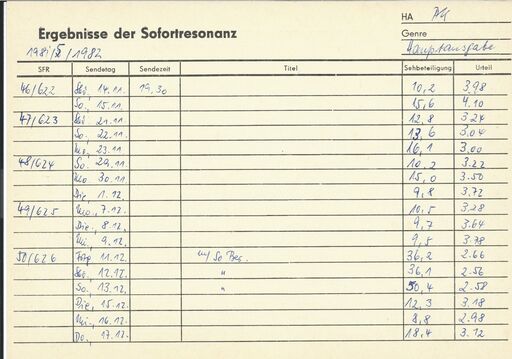 HA AK
Ergebnisse der Sofortresonanz
Genre
1981/ /1982
Hauptausgabe
SFR Sendetag Sendezeit Titel Sehbeteiligung Urteil
46/622 Sa., 14.11. 19.30 10,2 3.98
So., 15.11. 15,6 4.10
47/623 Sa., 21.11. 12,8 3.24
So., 22.11. 13,6 3.04
Mo., 23.11. 16,1 3.00
48/624 So. 29.11. 10,2 3.22
Mo 30.11. 15,0 3.50
Die, 1.12. 9,8 3.72
49/625 Mo., 7.12. 10,5 3.28
Die., 8.12. 9,7 3.64
Mi., 9.12. 9,5 3.78
50/626 11.12. So Ber. 36,2 2.66
Sa., 12.12. " 36,1 2.56
So., 13.12. " 50,4 2.58
Die, 15.12. 12,3 3.18
Mi., 16.12. 8,8 2.98
Do., 17.12. 18,4 3.12